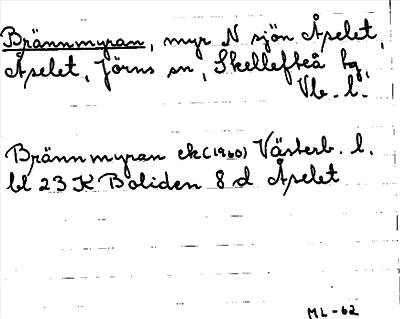 Brännmyran, myr N sjön Åselet,
Åselet, Jörns sn, Skellefteå tg,
Vb. l.
Brännmyran ek (1960) Västerb. l.
bl 23 K Boliden 8 d Åselet
ML-62